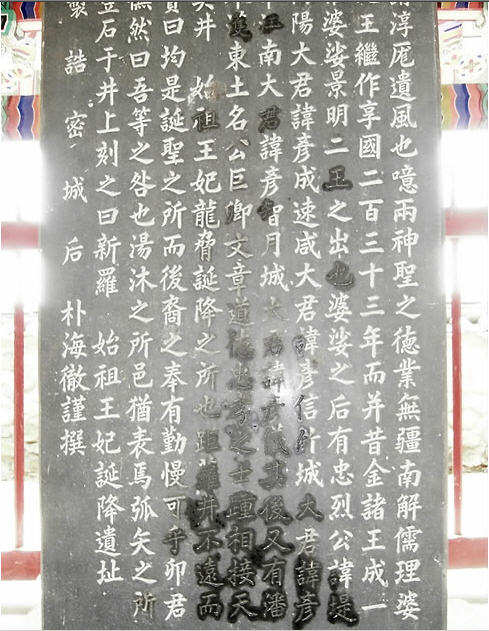 淳厖遺風也噫兩神聖之德業無疆南解儒理婆
王繼作享國二百三十三年而并昔金諸王成一
婆娑景明二王之出也婆娑之后有忠烈公諱堤
陽大君諱彦成速咸大君諱彦信竹城大君諱彦
江南大君諱彦智月城大君諱彦儀其後又有潘
東土名公巨卿文章道德忠孝之士踵相接天
井 始祖王妃龍脅誕降之所也距蘿井不遠而
曰均是誕聖之所而後裔之奉有勤慢可乎卯君
然曰吾等之咎也湯沐之所邑猶表焉弧矢之所
石于井上刻之曰新羅 始祖王妃誕降遺址
製 誥 密城 后 朴海徹謹撰